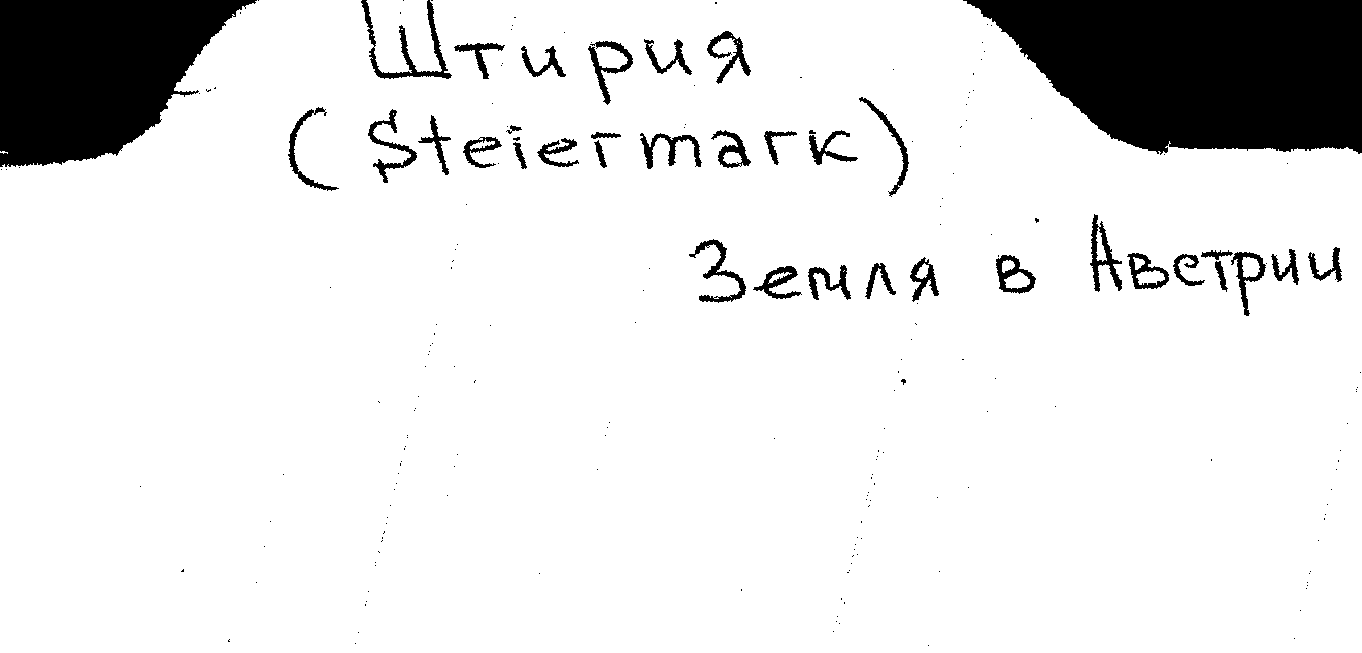 Штирия
(Steiermark)
Земля в Австрии